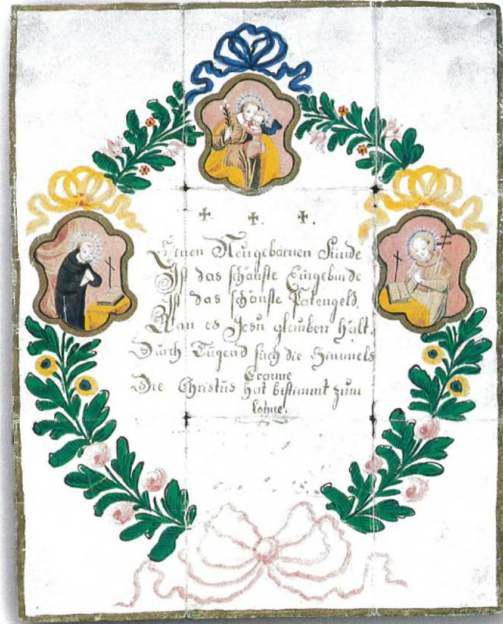 Einen Neugebornen Kinde
Ist das schönste Eingebinde
Ist das schönste Patengeld,
Wan es Jesu glauben halt.
Durch Tugend such die Himmels
Cronne
Die Christus hat bestimmt zum
Lohne.